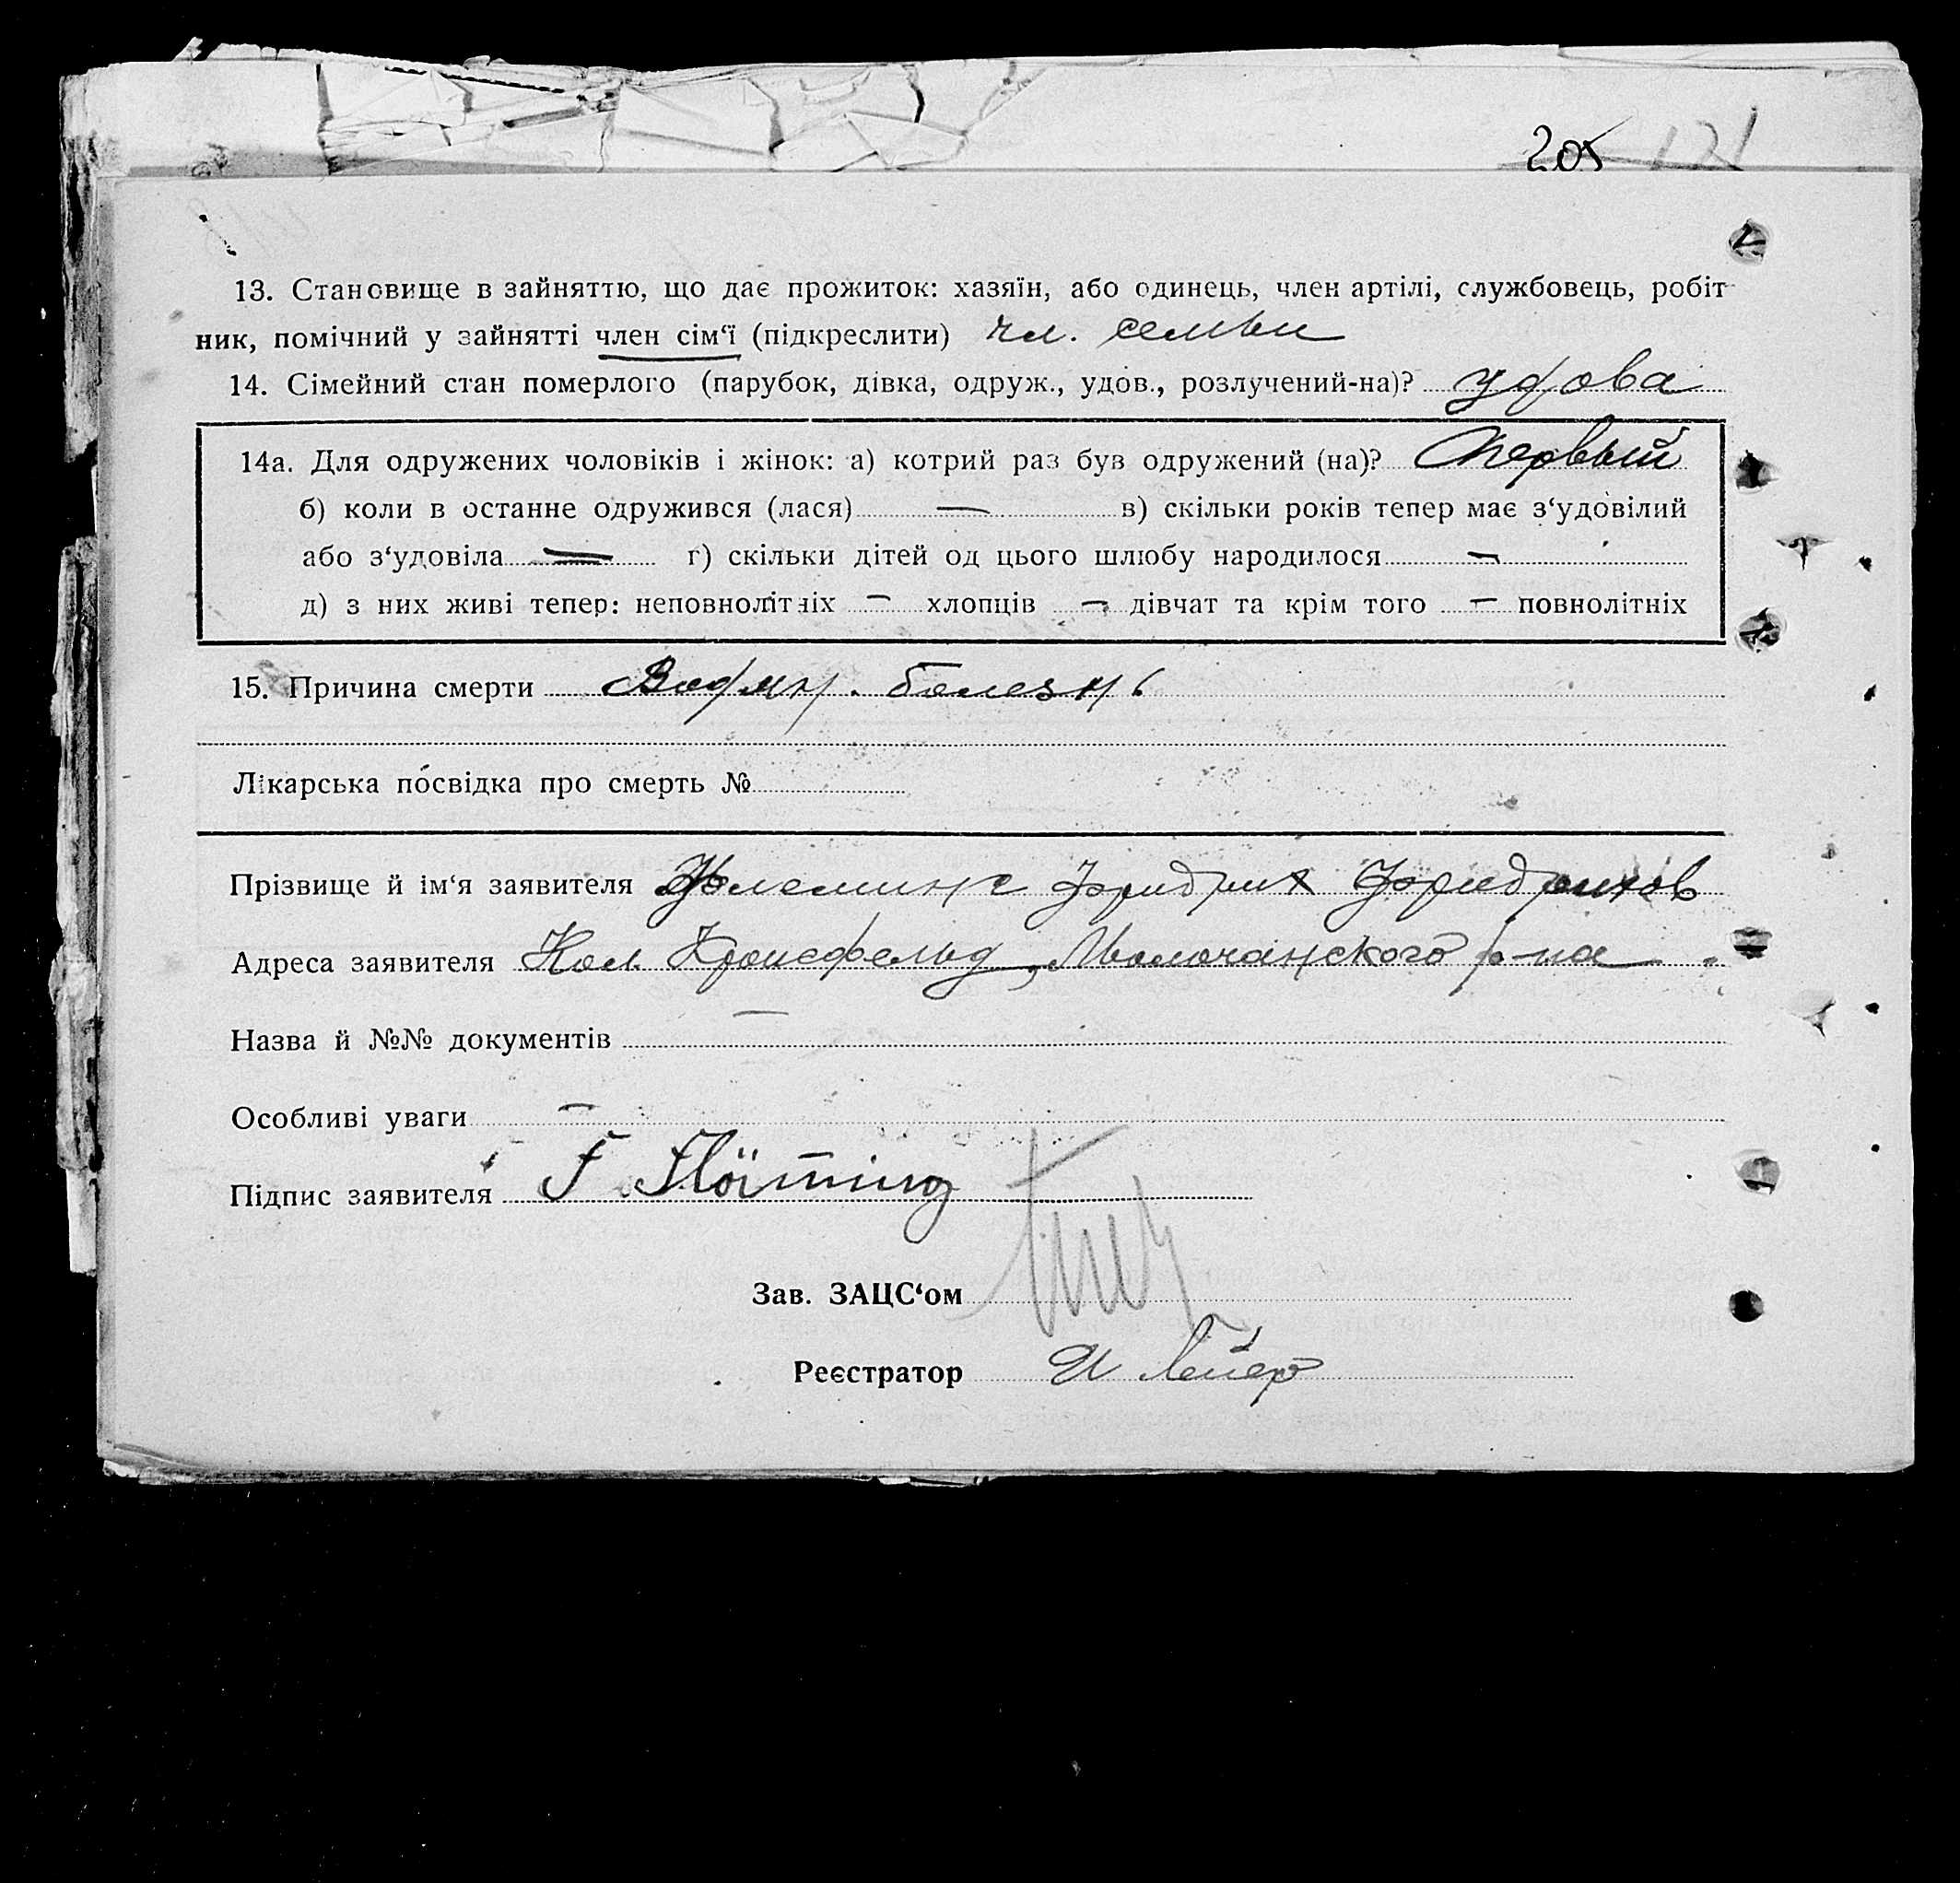 205 121
13. Становище в зайняттю, що дає прожиток: хазяїн, або одинець, член артілі, службовець, робіт-
ник, помічний у зайнятті член сім‘ї (підкреслити) чл. семьи
14. Сімейний стан померлого (парубок, дівка, одруж., удов., розлучений-на)? удова
14а. Для одружених чоловіків і жінок: а) котрий раз був одружений (на)? Первый
б) коли в останне одружився (лася) — в) скільки років тепер має з‘удовілий
або з‘удовіла — г) скільки дітей од цього шлюбу народилося —
д) з них живі тепер: неповнолітніх — хлопців — дівчат та крім того — повнолітніх
15. Причина смерти болезнь
Лікарська посвідка про смерть №
Прізвище й ім‘я заявителя Флеминг Фридрих Фридрихов
Адреса заявителя Кол. Кронсфельд, Молочанского р-на
Назва й №№ документів —
Особливі уваги —
Підпис заявителя F. Fläming
Зав. ЗАЦС‘ом
Реєстратор